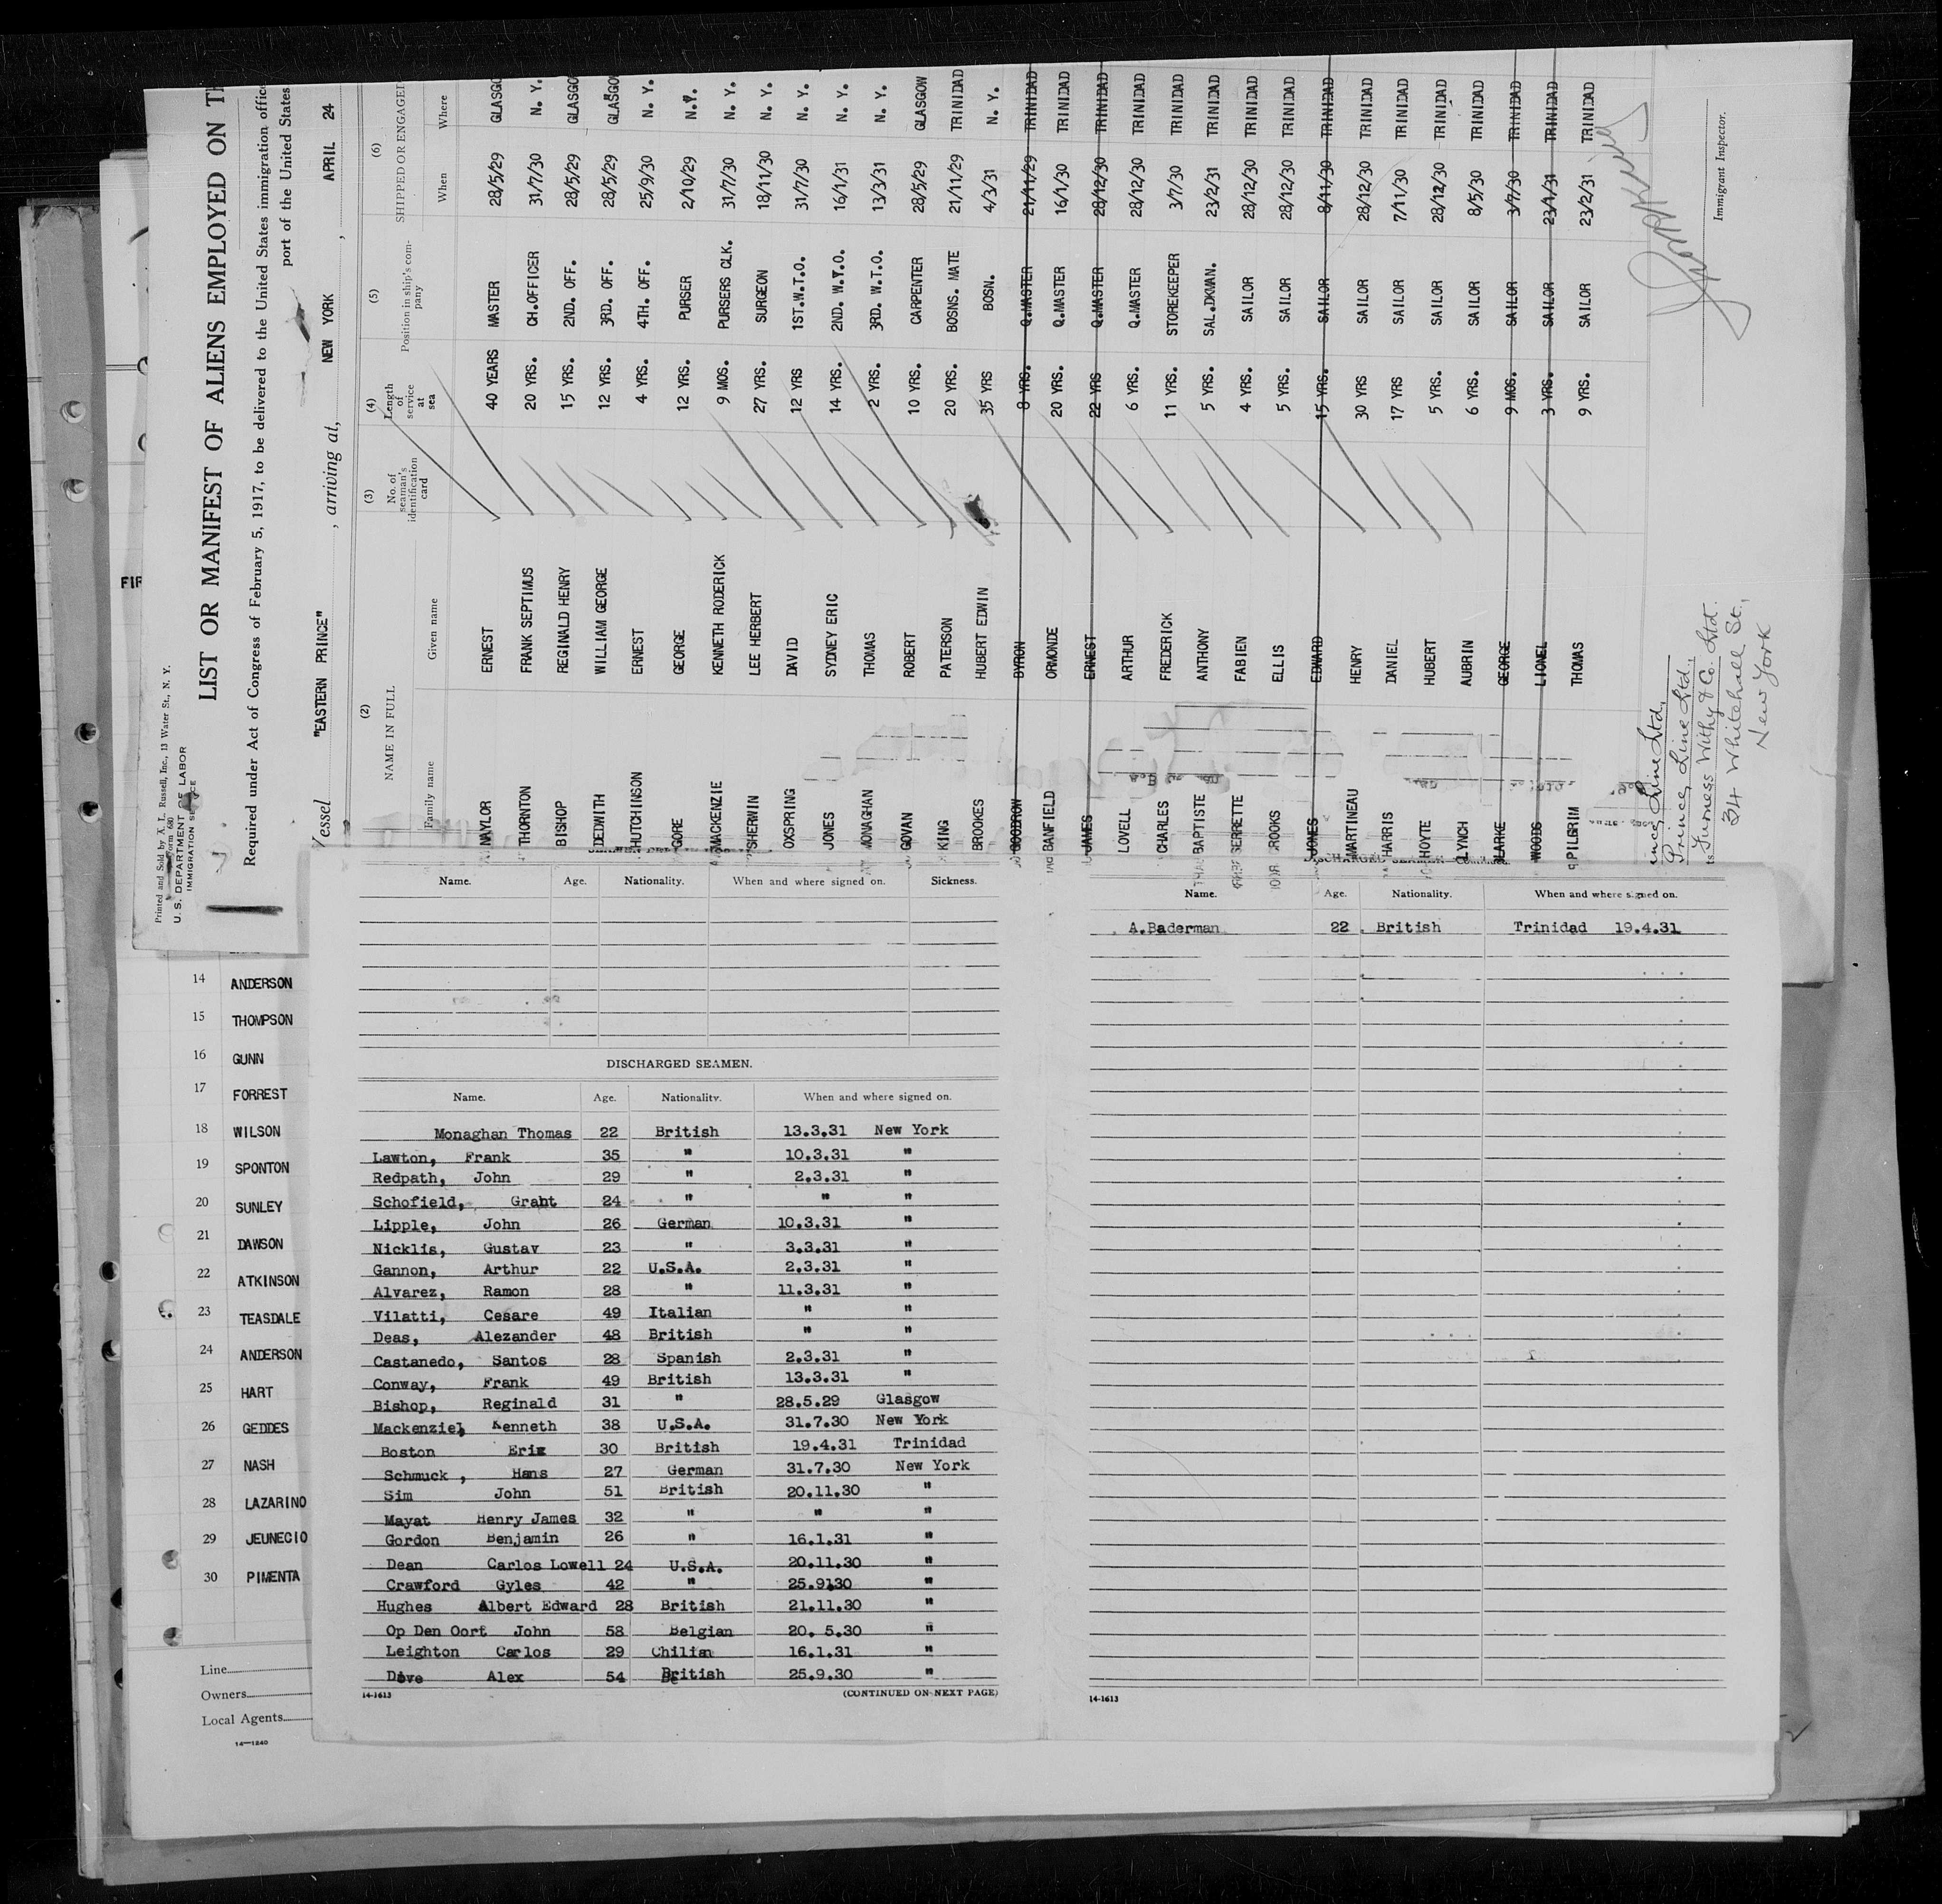 Printed and Sold by A. L. Russell, Inc., 13 Water St., N. Y.
Form 680
U. S. DEPARTMENT OF LABOR
IMMIGRATION SERVICE
LIST OR MANIFEST OF ALIENS EMPLOYED ON
Required under Act of Congress of February 5, 1917, to be delivered to the United States immigration
port of the United States
Vessel "EASTERN PRINCE", arriving at, NEW YORK, APRIL 24
(2) (3) (4) (5) (6)
NAME IN FULL No. of seaman's identification card Length of service at sea Position in ship's company SHIPPED OR ENGAGED
Family name Given name When Where
NAYLOR ERNEST 40 YEARS MASTER 28/5/29
THORNTON FRANK SEPTIMUS 20 YRS. CH.OFFICER 31/7/30 N. Y.
BISHOP REGINALD HENRY 15 YRS. 2ND. OFF. 28/5/29
DEDWITH WILLIAM GEORGE 12 YRS. 3RD. OFF. 28/5/29 GLASGOW
HUTCHINSON ERNEST 4 YRS. 4TH. OFF. 25/9/30 N. Y.
GORE GEORGE 12 YRS. PURSER 2/10/29 N.Y.
MACKENZIE KENNETH RODERICK 9 MOS. PURSERS CLK. 31/7/30 N. Y.
SHERWIN LEE HERBERT 27 YRS. SURGEON 18/11/30 N. Y.
OXSPRING DAVID 12 YRS 1ST.W.T.O. 31/7/30 N. Y.
JONES SYDNEY ERIC 14 YRS. 2ND. W.T.O. 16/1/31 N. Y.
MONAGHAN THOMAS 2 YRS. 3RD. W.T.O. 13/3/31 N. Y.
GOVAN ROBERT 10 YRS. CARPENTER 28/5/29 GLASGOW
KING PATERSON 20 YRS. BOSNS. MATE 21/11/29 TRINIDAD
BROOKES HUBERT EDWIN 35 YRS BOSN. 4/3/31 N. Y.
BYRON 8 YRS. Q.MASTER 21/11/29 TRINIDAD
BANFIELD ORMONDE 20 YRS. Q.MASTER 16/1/30 TRINIDAD
JAMES ERNEST 22 YRS Q.MASTER 28/12/30 TRINIDAD
LOVELL ARTHUR 6 YRS. Q.MASTER 28/12/30 TRINIDAD
CHARLES FREDERICK 11 YRS. STOREKEEPER 3/7/30 TRINIDAD
BAPTISTE ANTHONY 5 YRS. SAL.DKMAN. 23/2/31 TRINIDAD
SERRETTE FABIEN 4 YRS. SAILOR 28/12/30 TRINIDAD
CROOKS ELLIS 5 YRS. SAILOR 28/12/30 TRINIDAD
JONES EDWARD 15 YRS. SAILOR 8/11/30 TRINIDAD
MARTINEAU HENRY 30 YRS SAILOR 28/12/30 TRINIDAD
HARRIS DANIEL 17 YRS SAILOR 7/11/30 TRINIDAD
HOYTE HUBERT 5 YRS. SAILOR 28/12/30 TRINIDAD
LYNCH AUBRIN 6 YRS. SAILOR 8/5/30 TRINIDAD
BLAKE GEORGE 9 MOS. SAILOR 3/7/30 TRINIDAD
WOODS LIONEL 3 YRS. SAILOR 23/1/31 TRINIDAD
PILGRIM THOMAS 9 YRS. SAILOR 23/2/31 TRINIDAD
Line Ltd.
Prince Line Ltd.,
Furness Withy & Co. Ltd.
34 Whitehall St.,
New York
Immigrant Inspector.
FIR
14 ANDERSON
15 THOMPSON
16 GUNN
17 FORREST
18 WILSON
19 SPONTON
20 SUNLEY
21 DAWSON
22 ATKINSON
23 TEASDALE
24 ANDERSON
25 HART
26 GEDDES
27 NASH
28 LAZARINO
29 JEUNECIO
30 PIMENTA
Line
Owners
Local Agents
14—1240
Name. Age. Nationality. When and where signed on. Sickness.
DISCHARGED SEAMEN.
Name. Age. Nationality. When and where signed on.
Monaghan Thomas 22 British 13.3.31 New York
Lawton, Frank 35 " 10.3.31 "
Redpath, John 29 " 2.3.31 "
Schofield, Graht 24 " " "
Lipple, John 26 German 10.3.31 "
Nicklis, Gustav 23 " 3.3.31 "
Gannon, Arthur 22 U.S.A. 2.3.31 "
Alvarez, Ramon 28 " 11.3.31 "
Vilatti, Cesare 49 Italian " "
Deas, Alezander 48 British " "
Castanedo, Santos 28 Spanish 2.3.31 "
Conway, Frank 49 British 13.3.31 "
Bishop, Reginald 31 " 28.5.29 Glasgow
Mackenzie, Kenneth 38 U.S.A. 31.7.30 New York
Boston Eric 30 British 19.4.31 Trinidad
Schmuck , Hans 27 German 31.7.30 New York
Sim John 51 British 20.11.30 "
Mayat Henry James 32 " " "
Gordon Benjamin 26 " 16.1.31 "
Dean Carlos Lowell 24 U.S.A. 20.11.30 "
Crawford Gyles 42 " 25.9130 "
Hughes Albert Edward 28 British 21.11.30 "
Op Den Oort John 58 Belgian 20. 5.30 "
Leighton Carlos 29 Chilian 16.1.31 "
Dove Alex 54 British 25.9.30 "
14-1613
(CONTINUED ON NEXT PAGE)
Name. Age. Nationality. When and where signed on.
A.Baderman 22 British Trinidad 19.4.31
14-1613